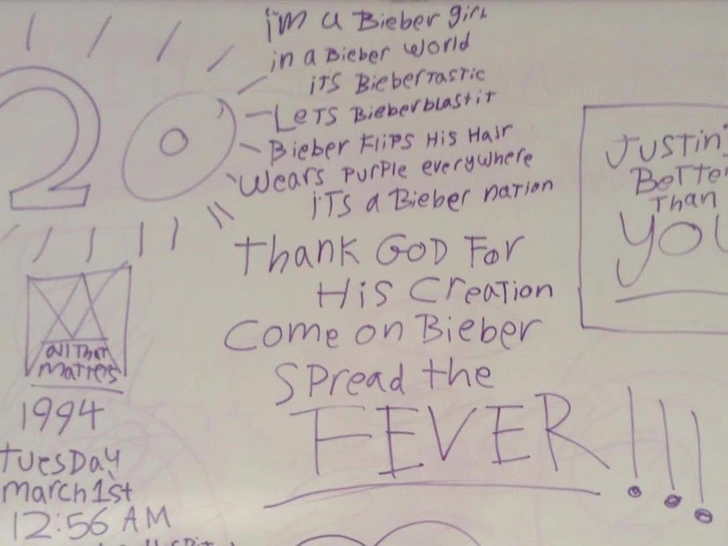 20
i'm a Bieber girl
in a Bieber World
iTS BieberTasTic
LeTS Bieberblastit
Bieber Flips His Hair
Wears PurPle everywhere
iTs a Bieber naTion
Thank GOD For
His Creation
Come on Bieber
SPread the
FEVER!!!
JUSTin
BeTTe
Than
YOU
all That
maTTers
1994
TuesDay
march 1st
12:56 AM